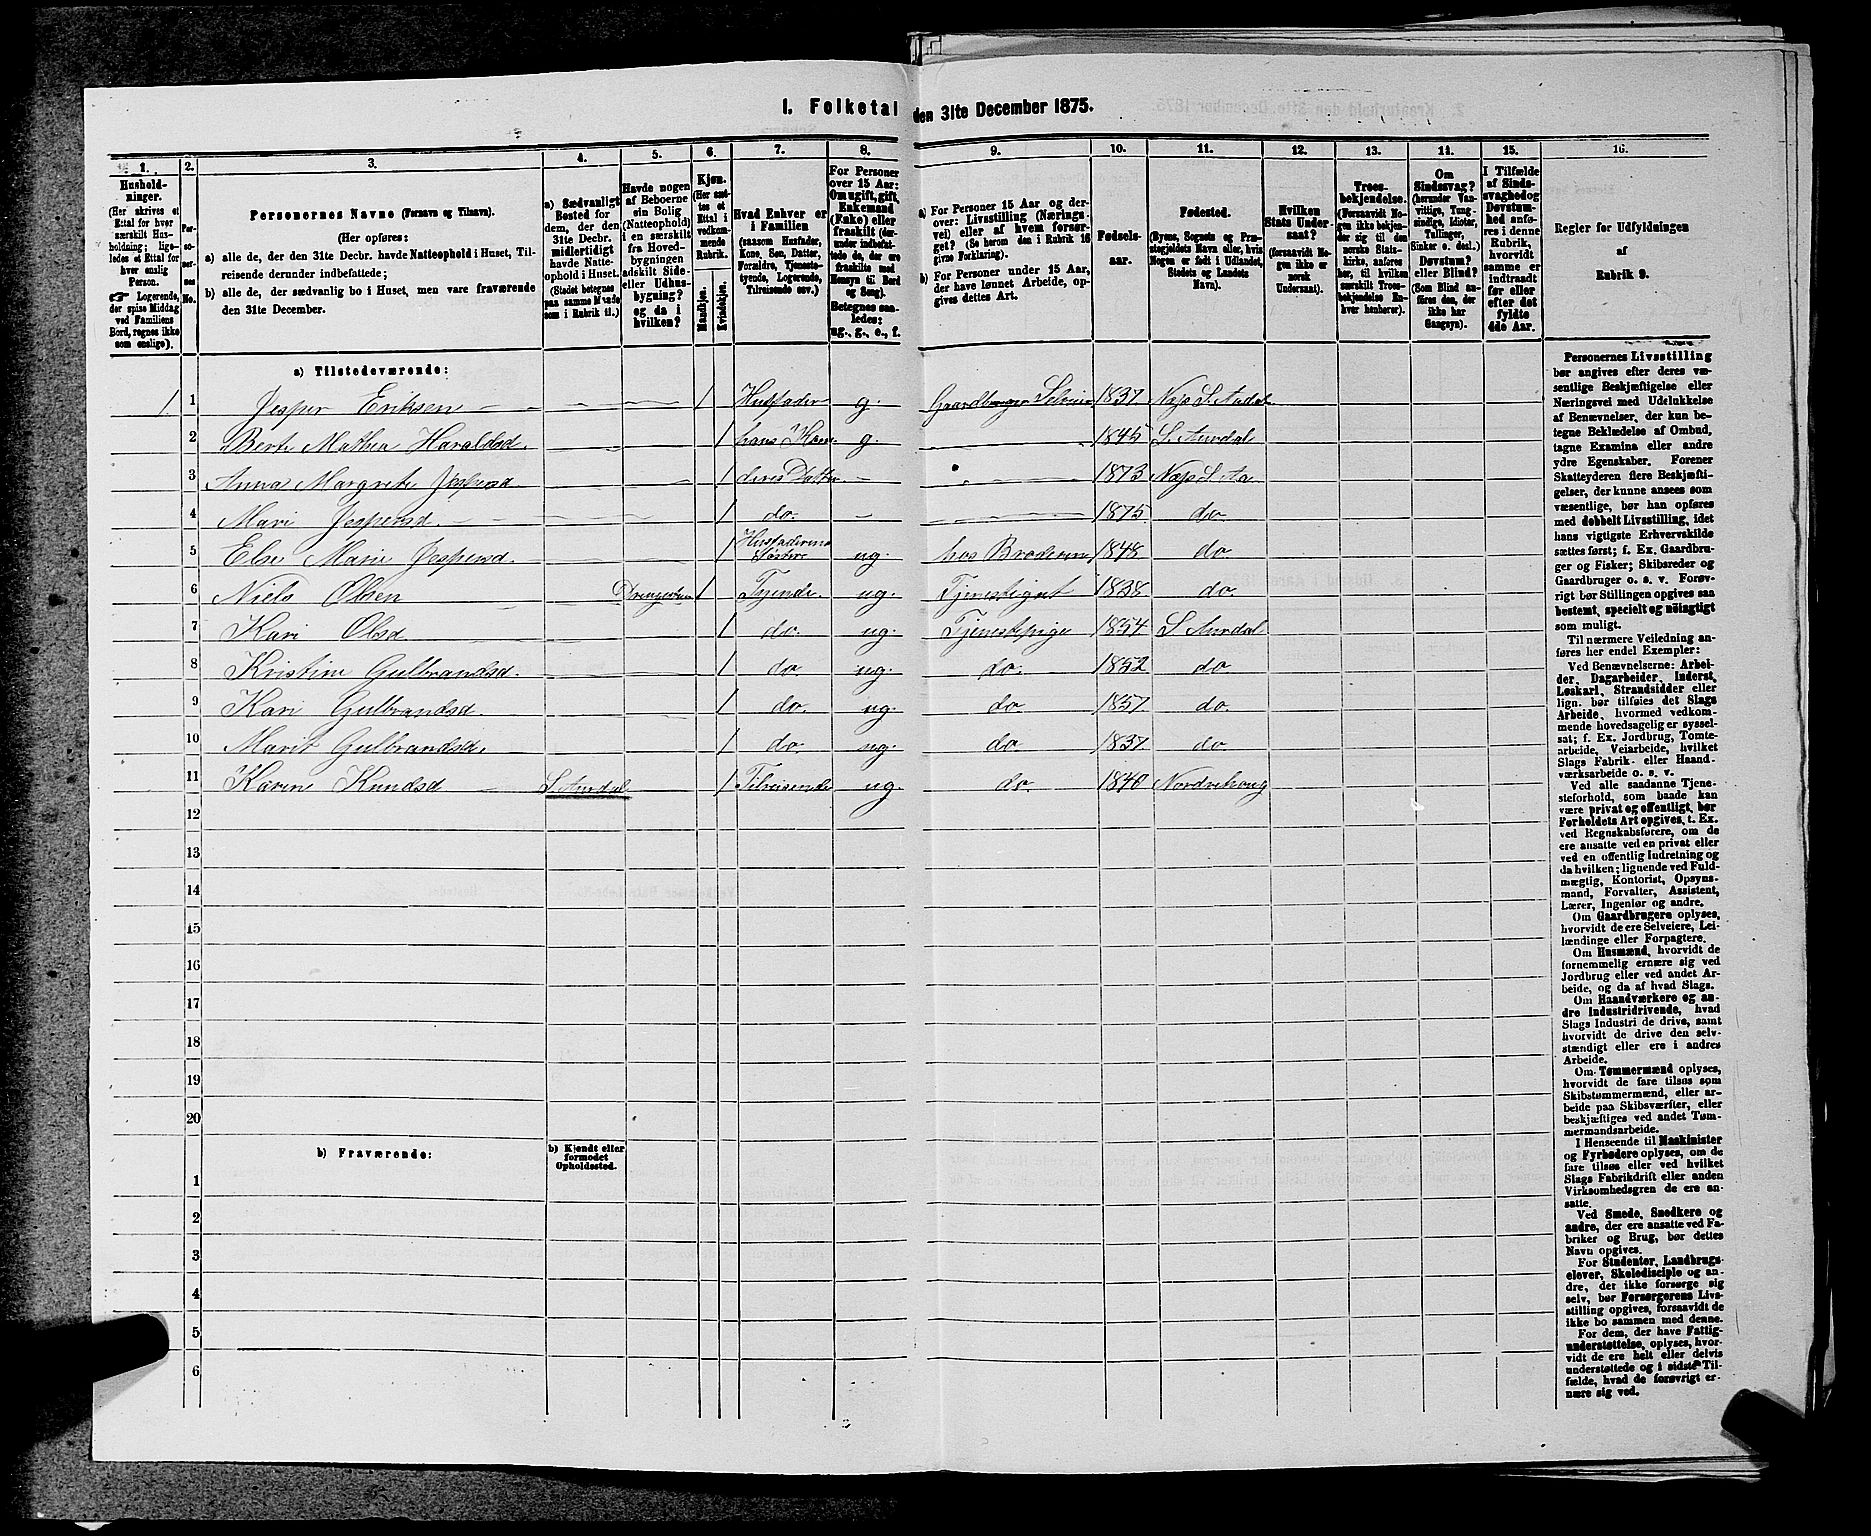 I. Folketal den 31te December 1875.
1. 2. 3. 4. 5. 6. 7. 8. 9. 10. 11. 12. 13. 14. 15. 16.
Husholdninger.
(Her skrives et
Ettal for hver
særskilt Husholdning; ligeledes et Ettal for
hver enslig
Person.
Logerende,
der spise Middag
ved Familiens
Bord, regnes ikke
som enslige).
Personernes No.
Personernes Navne (Fornavn og Tilnavn).
(Her opføres:
a) alle de, der den 31te Decbr. havde Natteophold i Huset, Tilreisende derunder indbefattede;
b) alle de, der sædvanlig bo i Huset, men vare fraværende
den 31te December.
a) Sædvanligt
Bosted for
dem, der den
31te Decbr.
midlertidigt
havde Natteophold i Huset.
(Stedet betegnes
paa samme Maade
som i Rubrik 11.)
Havde nogen
af Beboerne
sin Bolig
(Natteophold)
i en særskilt
fra Hovedbygningen
adskilt Side-
eller Udhusbygning?
og da i
hvilken?
Kjøn.
(Her sættes et
Ettal i
vedkommende
Rubrik.
Mandkjøn.
Kvindekjøn.
Hvad Enhver er
i Familien
(saasom Husfader,
Kone, Søn, Datter,
Forældre, Tjenestetyende, Logerende,
Tilreisende osv.)
For Personer
over 15 Aar:
Om ugift, gift,
Enkemand
(Enke) eller
fraskilt (derunder indbefattede de, der ere
fraskilte med
Hensyn til Bord
og Seng).
Betegnes saaledes:
ug., g., e., f.
a) For Personer 15 Aar og derover: Livsstilling (Næringsvei) eller af hvem forsørget? (Se herom den i Rubrik 16
givne Forklaring).
b) For Personer under 15 Aar,
der have lønnet Arbeide, opgives dettes Art.
Fødselsaar.
Fødested.
(Byens, Sognets og Præstegjeldets Navn eller, hvis
Nogen er født i Udlandet,
Stedets og Landets
Navn).
Hvilken
Stats Undersaat?
(forsaavidt Nogen ikke er
norsk
Undersaat).
Troesbekjendelse.
(Forsaavidt Nogen ikke bekjender sig til den
norske Statskirke, anføres
her, til hvilken
særskilt Troesbekjendelse Enhver henhører).
Om
Sindssvag?
(herunder Vanvittige, Tungsindige, Idioter,
Sinker o. desl.)
Døvstum?
eller Blind?
(Som Blind anføres den, der
ikke har
Gangsyn).
I Tilfælde
af Sindssvaghed og
Døvstumhed anføres i denne
Rubrik,
hvorvidt
samme er
indtraadt
før eller
efter det
fyldte
4de Aar.
Regler for Udfyldningen
af
Rubrik 9.
a) Tilstedeværende:
1 1 Jesper Eriksen 1 Husfader g. Gaardbruger Selveier 1837 Næs S. Aurdal
2 Berte Mathea Haraldsd. 1 hans Kone g. 1845 S. Aurdal
3 Anna Margrete Jespersd. 1 deres Datter 1873 Næs S. Au
4 Mari Jespersd. 1 do. 1875 do
5 Else Marie Jespersd. 1 Husfaderens Søster ug. hos Broderen 1848 do
6 Niels Olsen 1 Tyende. ug. 1838 do.
7 Kari Olsd. 1 do. ug. Tjenestepige 1854 S Aurdal
8 Kristine Gulbrandsd. 1 do ug. do. 1852 do
9 Kari Gulbrandsd. 1 do. ug. do 1857 do.
10 Marit Gulbrandsd. 1 do ug. do 1837 do
11 Karen Knudsd S Aurdal 1 Tilreisende ug. do. 1840 Norderhoug
12
13
14
15
16
17
18
19
20
b) Fraværende:
b) Kjendt eller
formodet
Opholdssted.
1
2
3
4
5
6
Personernes Livsstilling
bør angives efter deres væsentlige Beskjæftigelse eller
Næringsvei med Udelukkelse
af Benævnelser, der kun betegne Beklædelse af Ombud,
tagne Examina eller andre
ydre Egenskaber. Forener
Skatteyderen flere Beskjæftigelser, der kunne ansees som
væsentlige, bør han opføres
med dobbelt Livsstilling, idet
hans vigtigste Erhvervskilde
sættes først; f. Ex. Gaardbruger og Fisker; Skibsreder og
Gaardbruger o. s. v. Forøvrigt bør Stillingen opgives saa
bestemt, specielt og nöiagtigt
som muligt.
Til nærmere Veiledning anføres her endel Exempler:
Ved Benævnelserne: Arbeider, Dagarbeider, Inderst,
Løskarl, Strandsidder eller
lign. bør tilføies det Slags
Arbeide, hvormed vedkommende hovedsagelig er sysselsat; f. Ex. Jordbrug, Tomtearbeide, Veiarbeide, hvilket
Slags Fabrik- eller Haandværksarbeide o. s. v.
Ved alle saadanne Tjenesteforhold, som baade kan
være privat og offentligt, bør
Forholdets Art opgives, t. Ex.
ved Regnskabsførere, om de
ere ansatte ved en privat eller
ved en offentlig Indretning og
da hvilken; lignende ved Fuldmægtig, Kontorist, Opsynsmand, Forvalter, Assistent,
Lærer, Ingeniør og andre.
Om Gaardbrugere oplyses,
hvorvidt de ere Selveiere, Leilændinge eller Forpagtere.
Om Husmænd, hvorvidt de
fornemmelig ernære sig ved
Jordbrug eller ved andet Arbeide, og da af hvad Slags.
Om Haandværkere og andre Industridrivende, hvad
Slags Industri de drive, samt
hvorvidt de drive den selvstændigt eller ere i andres
Arbeide.
Om Tømmermænd oplyses,
hvorvidt de fare tilsøs som
Skibstømmermænd, eller arbeide paa Skibsværfter, eller
beskjæftiges ved andet Tømmermandsarbeide.
I Henseende til Maskinister
og Fyrbødere oplyses, om de
fare tilsøs eller ved hvilket
Slags Fabrikdrift eller anden
Virksomhedsgren de ere ansatte.
Ved Smede, Snedkere og
andre, der ere ansatte ved Fabriker og Brug, bør dettes
Navn opgives.
For Studenter, Landbrugselever, Skoledisciple og andre, der ikke forsørge sig
selv, bør Forsørgerens Livsstilling opgives, forsaavidt de
ikke bo sammen med denne.
For dem, der have Fattigunderstøttelse, oplyses, hvorvidt de ere helt eller delvis
understøttede og i sidste Tilfælde, hvad de forøvrigt ernære sig ved.